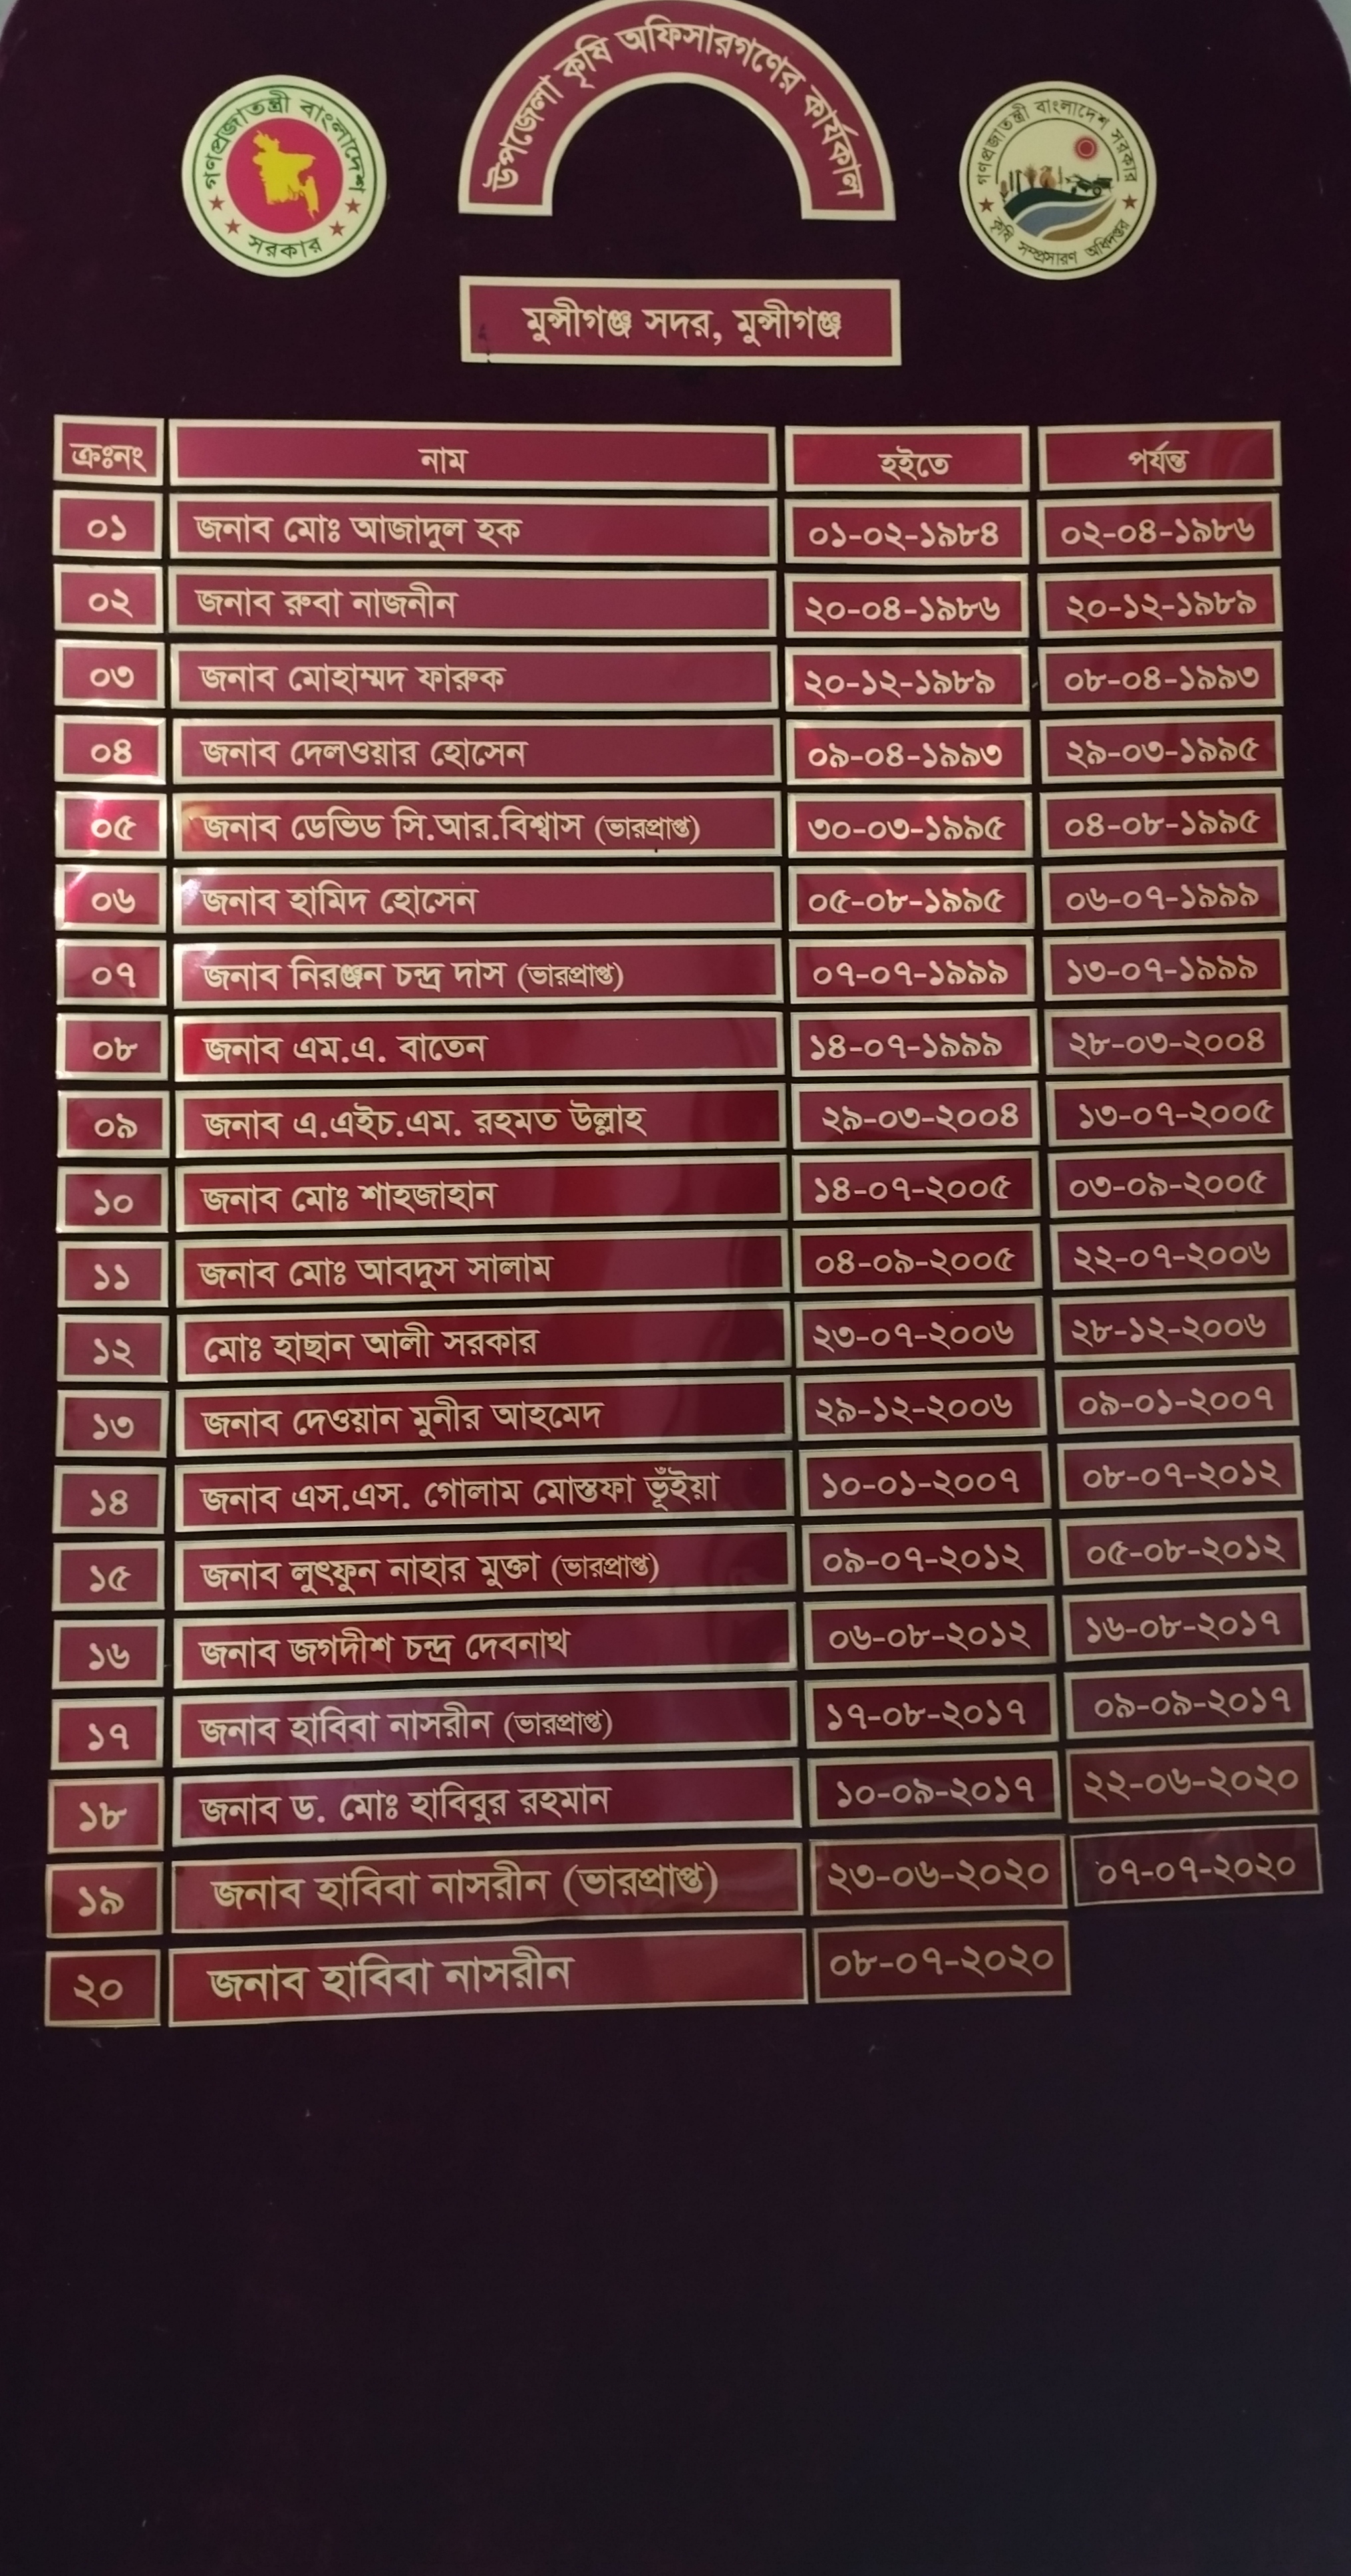 উপজেলা কৃষি অফিসারগণের কার্যকাল
গণপ্রজাতন্ত্রী বাংলাদেশ
সরকার
গণপ্রজাতন্ত্রী বাংলাদেশ সরকার
কৃষি সম্প্রসারণ অধিদপ্তর
মুন্সীগঞ্জ সদর, মুন্সীগঞ্জ
ক্রঃনং নাম হইতে পর্যন্ত
০১ জনাব মোঃ আজাদুল হক ০১-০২-১৯৮৪ ০২-০৪-১৯৮৬
০২ জনাব রুবা নাজনীন ২০-০৪-১৯৮৬ ২০-১২-১৯৮৯
০৩ জনাব মোহাম্মদ ফারুক ২০-১২-১৯৮৯ ০৮-০৪-১৯৯৩
০৪ জনাব দেলওয়ার হোসেন ০৯-০৪-১৯৯৩ ২৯-০৩-১৯৯৫
০৫ জনাব ডেভিড সি.আর.বিশ্বাস (ভারপ্রাপ্ত) ৩০-০৩-১৯৯৫ ০৪-০৮-১৯৯৫
০৬ জনাব হামিদ হোসেন ০৫-০৮-১৯৯৫ ০৬-০৭-১৯৯৯
০৭ জনাব নিরঞ্জন চন্দ্র দাস (ভারপ্রাপ্ত) ০৭-০৭-১৯৯৯ ১৩-০৭-১৯৯৯
০৮ জনাব এম.এ. বাতেন ১৪-০৭-১৯৯৯ ২৮-০৩-২০০৪
০৯ জনাব এ.এইচ.এম. রহমত উল্লাহ ২৯-০৩-২০০৪ ১৩-০৭-২০০৫
১০ জনাব মোঃ শাহজাহান ১৪-০৭-২০০৫ ০৩-০৯-২০০৫
১১ জনাব মোঃ আবদুস সালাম ০৪-০৯-২০০৫ ২২-০৭-২০০৬
১২ মোঃ হাছান আলী সরকার ২৩-০৭-২০০৬ ২৮-১২-২০০৬
১৩ জনাব দেওয়ান মুনীর আহমেদ ২৯-১২-২০০৬ ০৯-০১-২০০৭
১৪ জনাব এস.এস. গোলাম মোস্তফা ভূঁইয়া ১০-০১-২০০৭ ০৮-০৭-২০১২
১৫ জনাব লুৎফুন নাহার মুক্তা (ভারপ্রাপ্ত) ০৯-০৭-২০১২ ০৫-০৮-২০১২
১৬ জনাব জগদীশ চন্দ্র দেবনাথ ০৬-০৮-২০১২ ১৬-০৮-২০১৭
১৭ জনাব হাবিবা নাসরীন (ভারপ্রাপ্ত) ১৭-০৮-২০১৭ ০৯-০৯-২০১৭
১৮ জনাব ড. মোঃ হাবিবুর রহমান ১০-০৯-২০১৭ ২২-০৬-২০২০
১৯ জনাব হাবিবা নাসরীন (ভারপ্রাপ্ত) ২৩-০৬-২০২০ ০৭-০৭-২০২০
২০ জনাব হাবিবা নাসরীন ০৮-০৭-২০২০